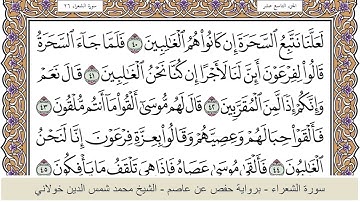 الجزء التاسع عشر
سورة الشعراء ٢٦
لَعَلَّنَا نَتَّبِعُ السَّحَرَةَ إِن كَانُوا هُمُ الْغَالِبِينَ ٤٠ فَلَمَّا جَاءَ السَّحَرَةُ
قَالُوا لِفِرْعَوْنَ أَئِنَّ لَنَا لَأَجْرًا إِن كُنَّا نَحْنُ الْغَالِبِينَ ٤١ قَالَ نَعَمْ
وَإِنَّكُمْ إِذًا لَّمِنَ الْمُقَرَّبِينَ ٤٢ قَالَ لَهُم مُّوسَىٰ أَلْقُوا مَا أَنتُم مُّلْقُونَ ٤٣
فَأَلْقَوْا حِبَالَهُمْ وَعِصِيَّهُمْ وَقَالُوا بِعِزَّةِ فِرْعَوْنَ إِنَّا لَنَحْنُ
الْغَالِبُونَ ٤٤ فَأَلْقَىٰ مُوسَىٰ عَصَاهُ فَإِذَا هِيَ تَلْقَفُ مَا يَأْفِكُونَ ٤٥
سورة الشعراء - برواية حفص عن عاصم - الشيخ محمد شمس الدين خولاني